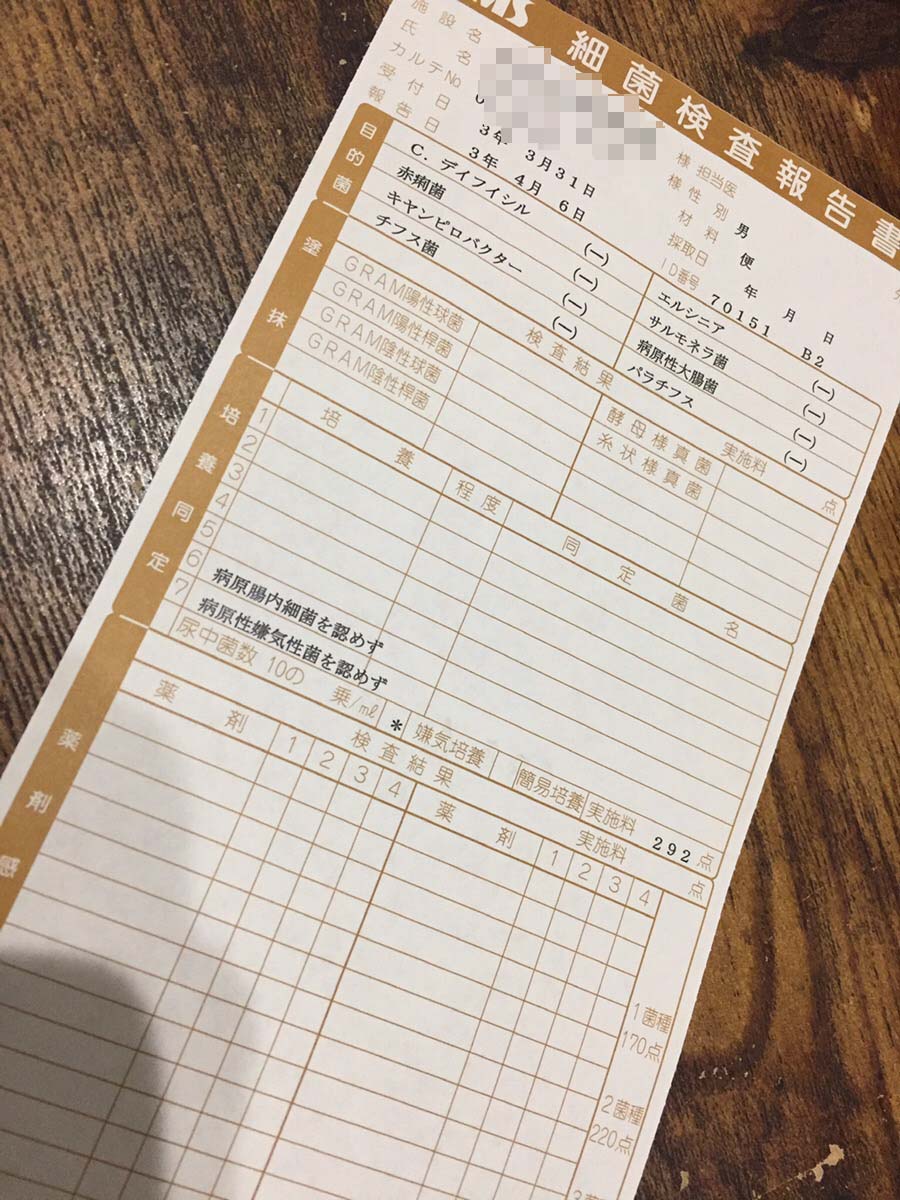 MS
細菌検査報告書
施設名
氏名
様 担当医
カルテNo
様 性別 男
受付日 3年 3月31日
材料 便
報告日 3年 4月 6日
採取日 年 月 日
ID番号 70151 B2
目的菌
C. ディフィシル (−)
エルシニア (−)
赤痢菌 (−)
サルモネラ菌 (−)
キャンピロバクター (−)
病原性大腸菌 (−)
チフス菌 (−)
パラチフス (−)
塗抹
検査結果
実施料 点
GRAM陽性球菌
酵母様真菌
GRAM陽性桿菌
糸状様真菌
GRAM陰性球菌
GRAM陰性桿菌
培養同定
培養 程度 同定菌名
1
2
3
4
5
6 病原腸内細菌を認めず
7 病原性嫌気性菌を認めず
尿中菌数 10の 乗/ml * 嫌気培養 簡易培養 実施料 292点
薬剤感
検査結果
実施料 点
薬剤 1 2 3 4 薬剤 1 2 3 4
1菌種
170点
2菌種
220点
3菌